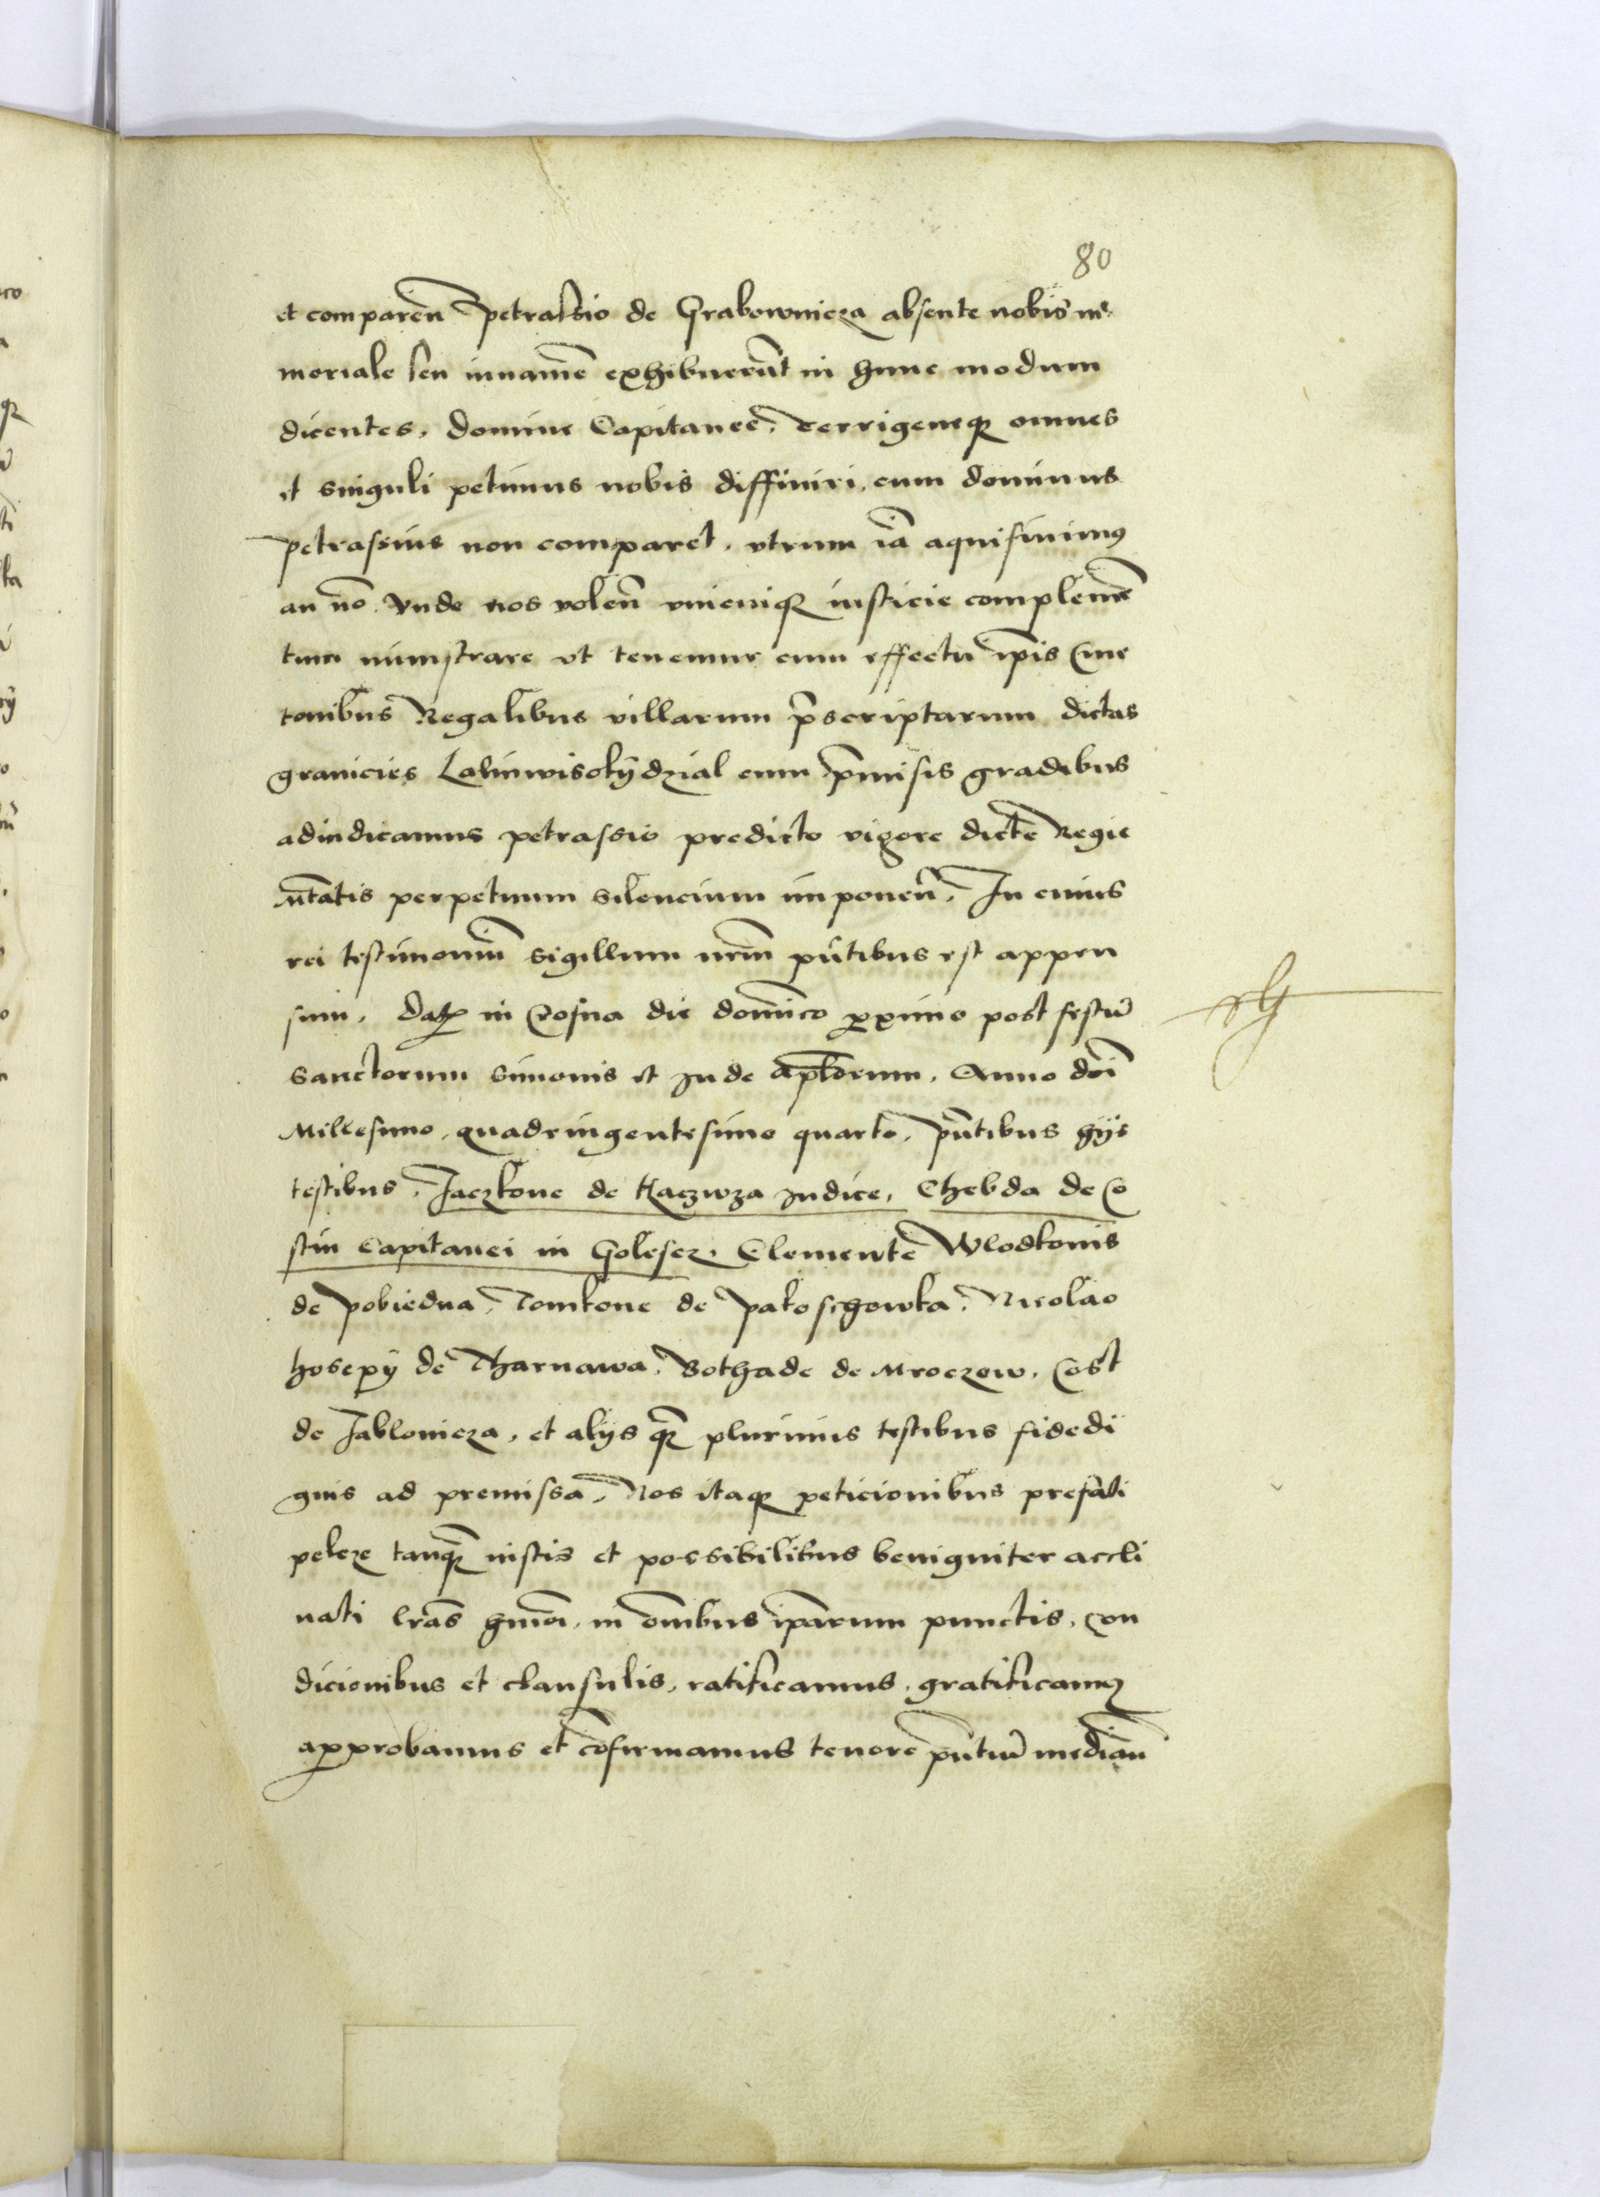 80
et comparen̄ petrassio de Grabownicza absente nobis me
moriale seu iuuamē exhibuerūt in hunc modum
dicentes, domine Capitanee, Terrigeneq3 omnes
et singuli petimus nobis diffiniri, cum dominus
petrassius non comparet, vtrum iā aquisiuimꝰ
an nō. Vnde nos volen̄ vnicuiq3 iusticie complemē
tum ministrare vt tenemur cum effectu ip̄is Cme
tonibus Regalibus villarum p̄scriptarum dictas
granicies Lasinwisokÿdzial cum p̄misis gradibus
adiudicamus petrassio predicto vigore dictē Regie
mtatis perpetuum silencium imponen̄. In cuius
rei testimoniū sigillum nr̄m pn̄tibus est appen
sum, Dat3 in Crosna die dominico proximo post festū
sanctorum simonis et jude ap̄lorum, Anno dn̄i
Millesimo, quadringentesimo quarto, pn̄tibus hÿs
testibus, Jaczkone de Kaczwza judice, Chebda de Co
stin Capitanei in Golesz, Clementē Wlodkonis
de pobiedna, Tomkone de pakoschowka, Nicolao
hosepÿ de Tharnawa, Bothade de Mroczow, Cost
de Jablonicza, et alÿs q3 plurimis testibus fidedi
gnis ad premissa, Nos itaq3 peticionibus prefati
pelcze tanq3 iustis et possibilibus benigniter accli
nati l̄ras hmōi, in om̄ibus ip̄arum punctis, con
dicionibus et clausulis, ratificamus, gratificamꝰ
approbamus et cōfirmamus tenorē pn̄tiū median̄